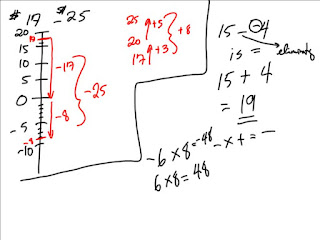 # 17 - 25
20
15
10
5
0
-5
-10
-17
-8
-25
25
+5
20
+3
17
+8
15 - -4
is =
15 + 4
= 19
-6 x 8 = -48
- x + = -
6 x 8 = 48